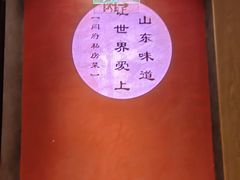 山东味道
让世界爱上
【闫府私房菜】